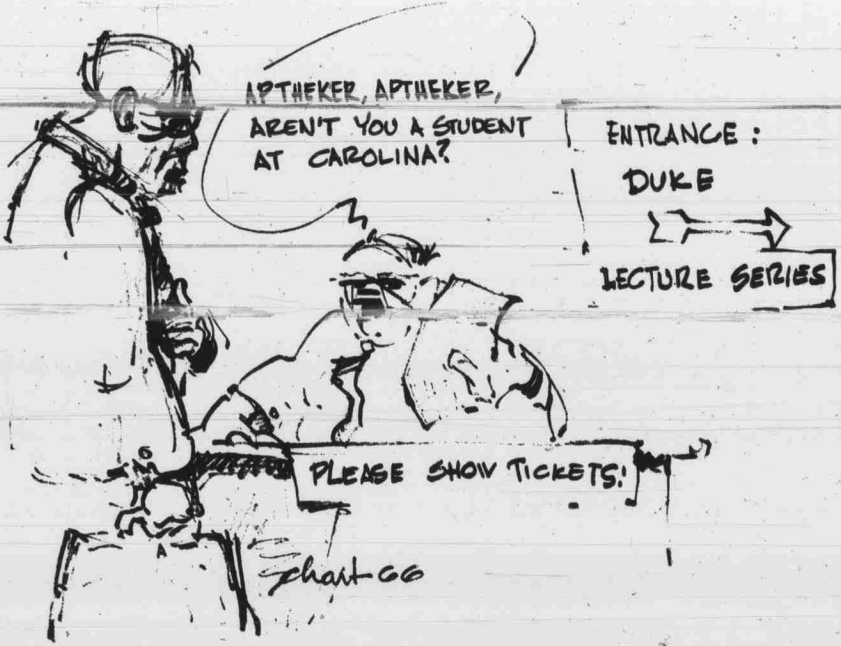 APTHEKER, APTHEKER,
AREN'T YOU A STUDENT
AT CAROLINA?
ENTRANCE:
DUKE
LECTURE SERIES
PLEASE SHOW TICKETS!
66